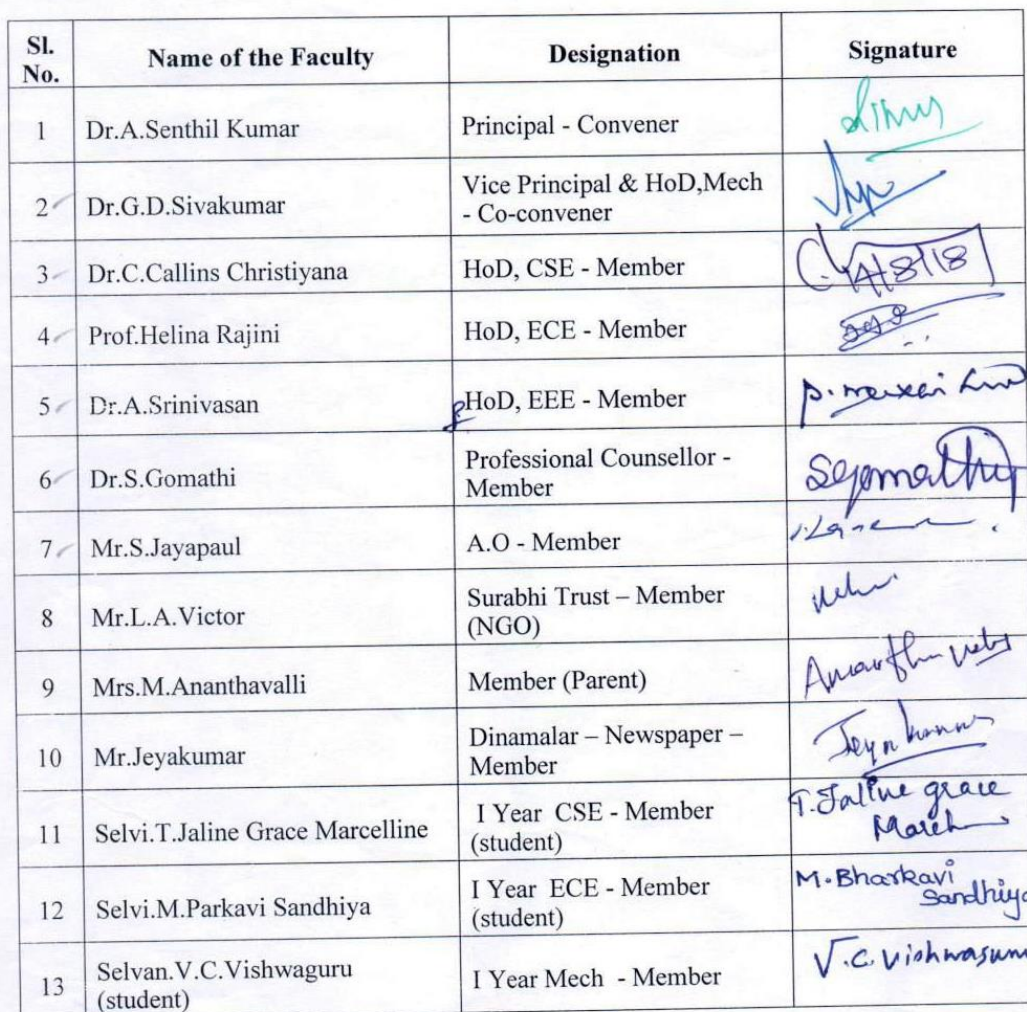 Sl. No. Name of the Faculty Designation Signature
1 Dr.A.Senthil Kumar Principal - Convener
2 Dr.G.D.Sivakumar Vice Principal & HoD,Mech
- Co-convener
3 Dr.C.Callins Christiyana HoD, CSE - Member
4 Prof.Helina Rajini HoD, ECE - Member
5 Dr.A.Srinivasan HoD, EEE - Member
6 Dr.S.Gomathi Professional Counsellor -
Member Sgomathi
7 Mr.S.Jayapaul A.O - Member
8 Mr.L.A.Victor Surabhi Trust – Member
(NGO)
9 Mrs.M.Ananthavalli Member (Parent)
10 Mr.Jeyakumar Dinamalar – Newspaper –
Member Jeyakumar
11 Selvi.T.Jaline Grace Marcelline I Year CSE - Member
(student) T.Jaline grace
12 Selvi.M.Parkavi Sandhiya I Year ECE - Member
(student) M.Bharkavi
Sandhiya
13 Selvan.V.C.Vishwaguru
(student) I Year Mech - Member V.C.